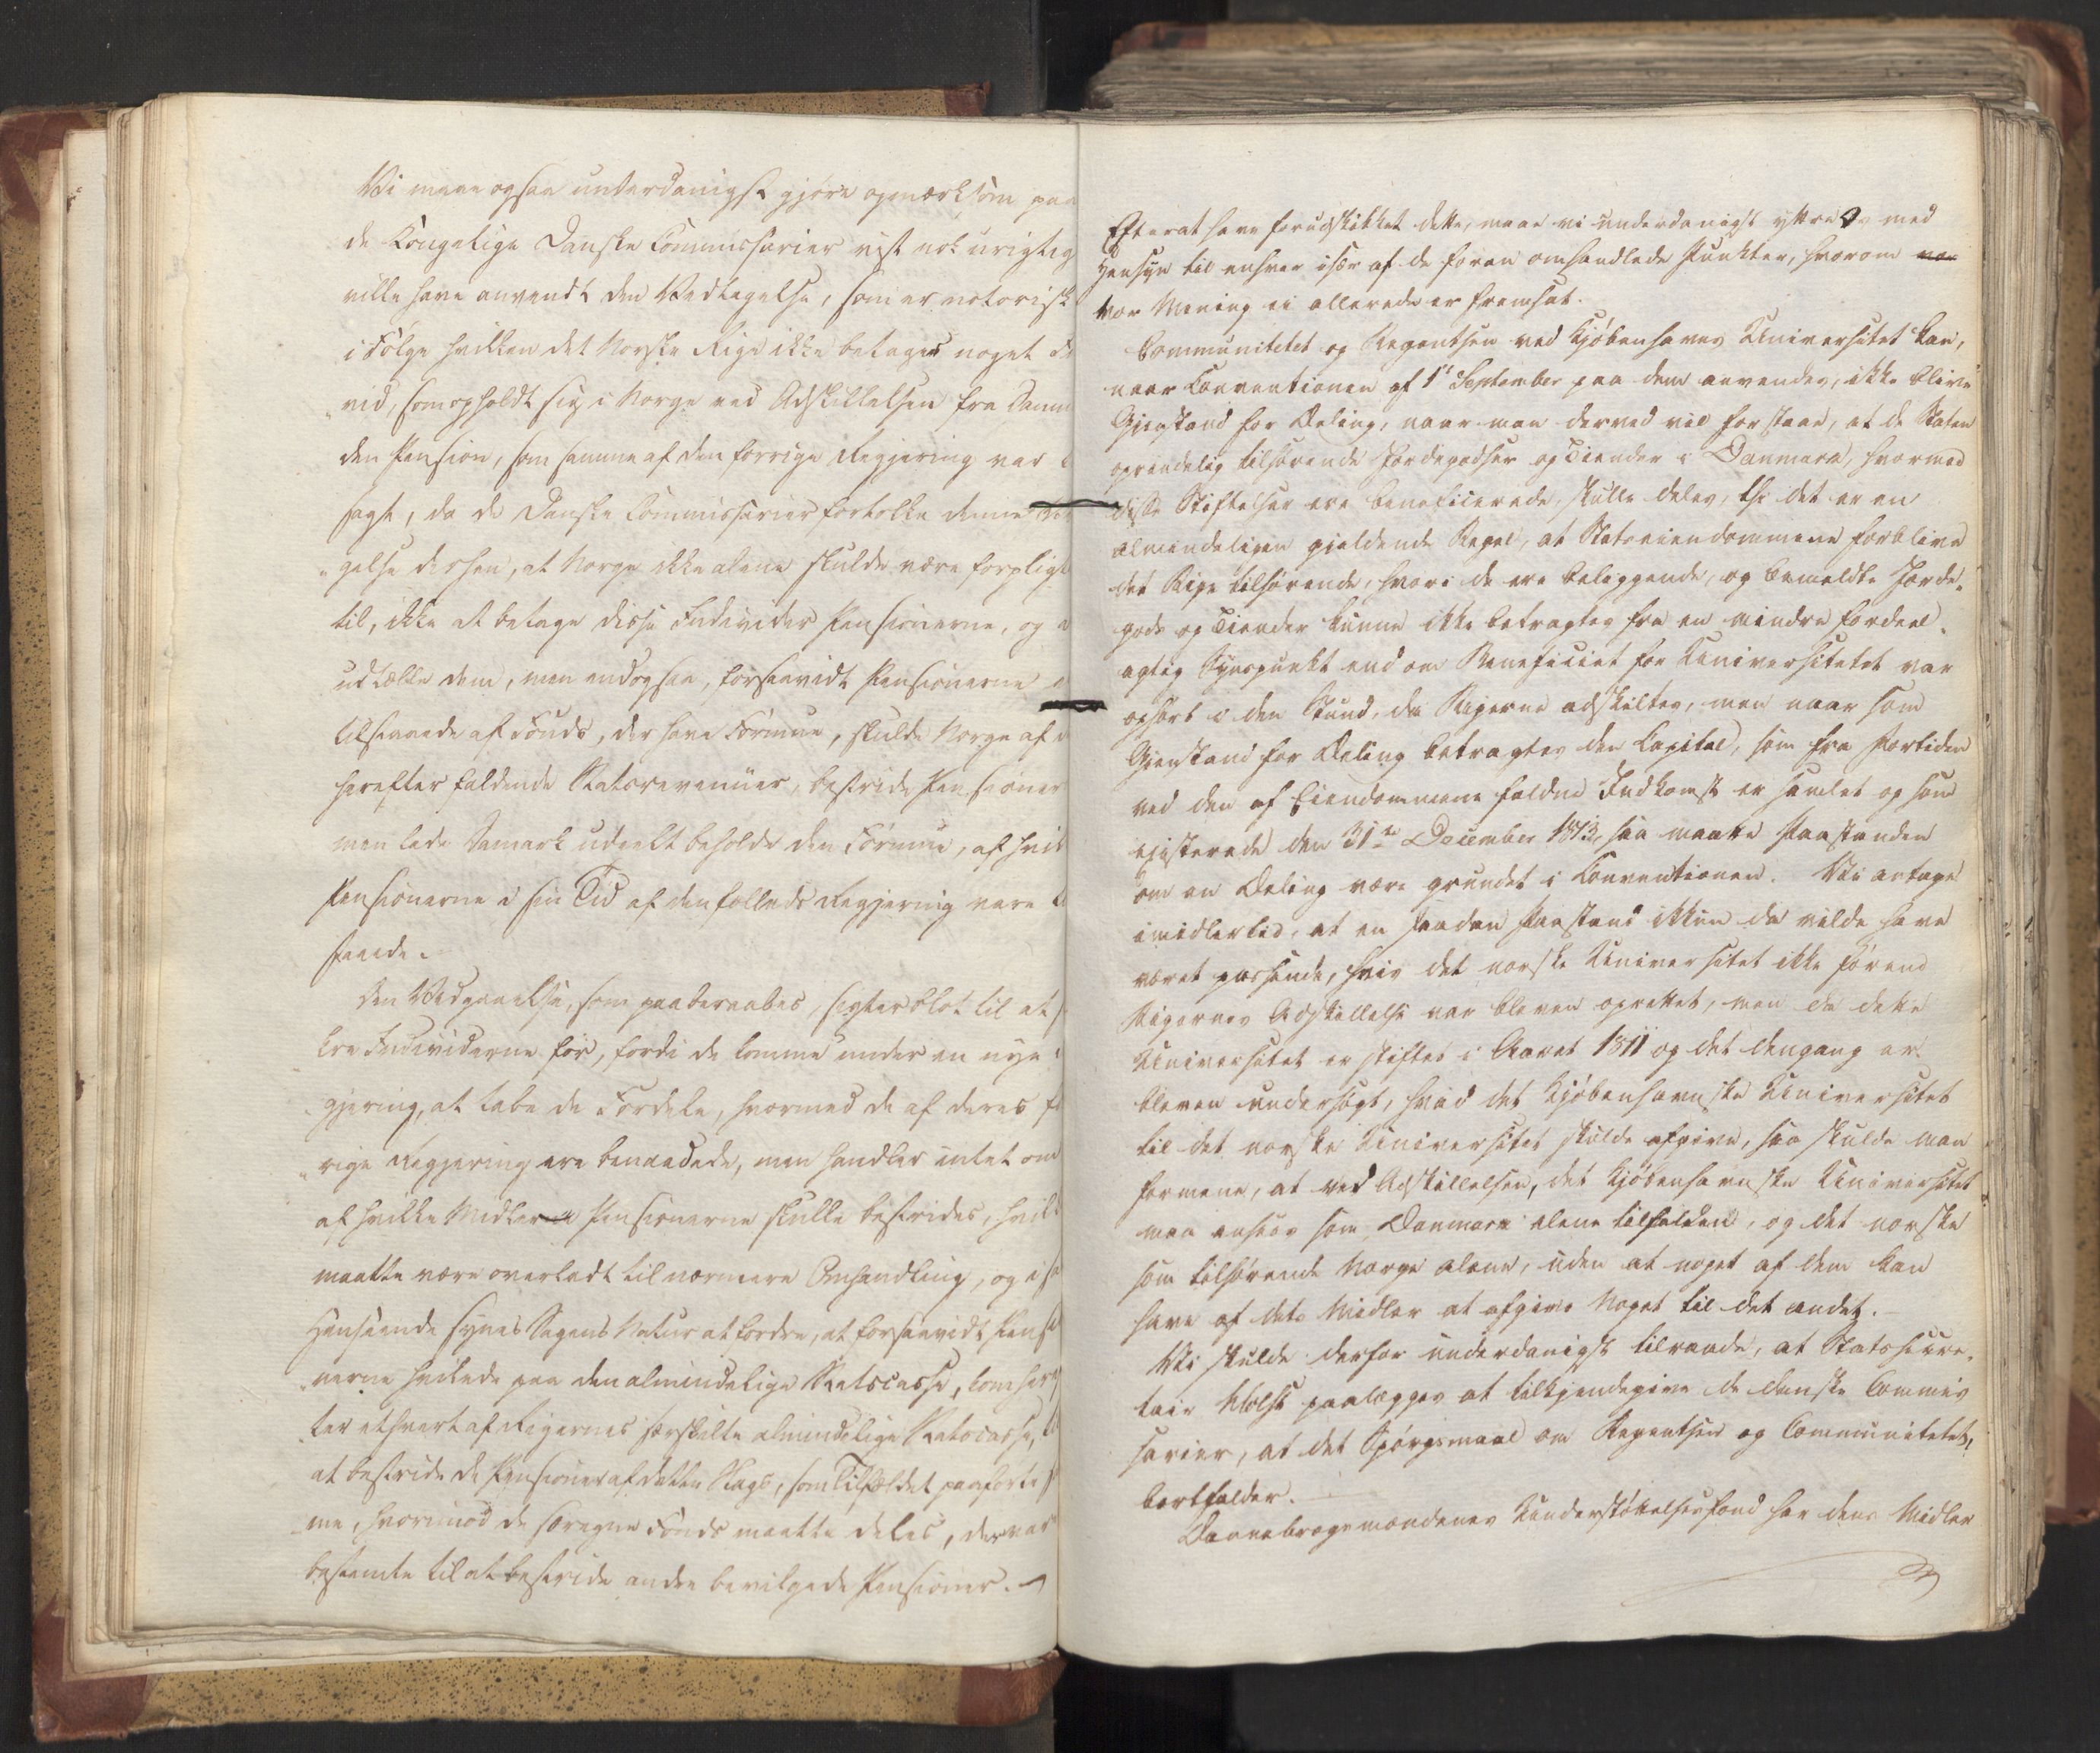 Vi maae ogsaa underdanigst gjøre opmærksom paa
de Kongelige Danske Commissarier vist nok urigtig
ville have anvendt den Vedtagelse, som er notorisk
i Følge hvilken det Norske Rige ikke betager noget
vid, som opholdt sig i Norge ved Adskillelsen fra Danm
den Pension, som samme af den forrige Regjering var
sagt, da de Danske Commissarier fortolke denne
„gelse derhen, at Norge ikke alene skulde være forpligt
til, ikke at betage disse Individer Pensionerne, og
udtælle dem, men endogsaa, forsaavidt Pensionerne
tilstaaede af Fonds, der have Formue, skulde Norge af
herefter faldende Statsrevenüer, bestride Pensioner
men lade Danmark udeelt beholde den Formue, af hvil
Pensionerne i sin Tid af den fælleds Regjering vare
staaede.
Den Vedtagelse, som paaberaabes, sigter blot til at
kre Individerne for, fordi de komme under en nye
„gjering, at tabe de Fordele, hvormed de af deres
„rige Regjering ere benaadede, men handler intet om
af hvilke Midler Pensionerne skulle bestrides, hvil
maatte være overladt til nærmere Omhandling, og i
Henseende synes Sagens Natur at fordre, at forsaavidt Pensi
„nerne hvilede paa den almindelige Statscasse, kom
ter ethvert af Rigernes særskilte almindelige Statscasse,
at bestride de Pensioner af dette Slags, som Tilfældet paaførte
me, hvorimod de særegne Fonds maatte deles, der var
bestemte til at bestride andre bevilgede Pensioner.
Efterat have forudskikket dette, maae vi underdanigst yttre Os med
Hensyn til enhver især af de foran omhandlede Punkter, hvorom vor
vor Mening ei allerede er fremsat.
Communitetet og Regentsen ved Kjøbenhavns Universitet kan,
naar Conventionen af 1ste September paa dem anvendes, ikke blive
Gjenstand for Deling, naar man derved vil forstaae, at de Staten
oprindelig tilhørende Jordegodser og Tiender i Danmark, hvormed
disse Stiftelser ere beneficerede, skulle deles, thi det er en
almindeligen gjeldende Regel, at Statseiendommene forblive
det Rige tilhørende, hvori de ere beliggende, og bemeldte Jorde„
gods og Tiender kunne ikke betragtes fra en mindre fordeel„
agtig Synspunkt end om Beneficiet for Universitetet var
ophørt i den Stund, da Rigerne adskiltes, men naar som
Gjenstand for Deling betragtes den Capital, som fra Fortiden
ved den af Eiendommene faldne Indkomst er samlet og som
existerede den 31te December 1813, saa maatte Paastanden
om en Deling være grundet i Conventionen. Vi antage
imidlertid, at en saadan Paastand ikkun da vilde have
været passende, hvis det norske Universitet ikke førend
Rigernes Adskillelse var bleven oprettet, men da dette
Universitet er stiftet i Aaret 1811 og det dengang er
bleven undersøgt, hvad det Kjøbenhavnske Universitet
til det norske Universitet skulde afgive, saa skulde man
formene, at ved Adskillelsen, det Kjøbenhavnske Universitet
maa ansees som Danmark alene tilfalden, og det norske
som tilhørende Norge alene, uden at noget af dem kan
have af dets Midler at afgive Noget til det andet.
Vi skulde derfor underdanigst tilraade, at Statssecre„
tair Holst paalægges at tilkjendegive de danske Commis
sarier, at det Spørgsmaal om Regentsen og Communitetet,
bortfalder.
Dannebrogsmændenes Understøttelsesfond har dens Midler